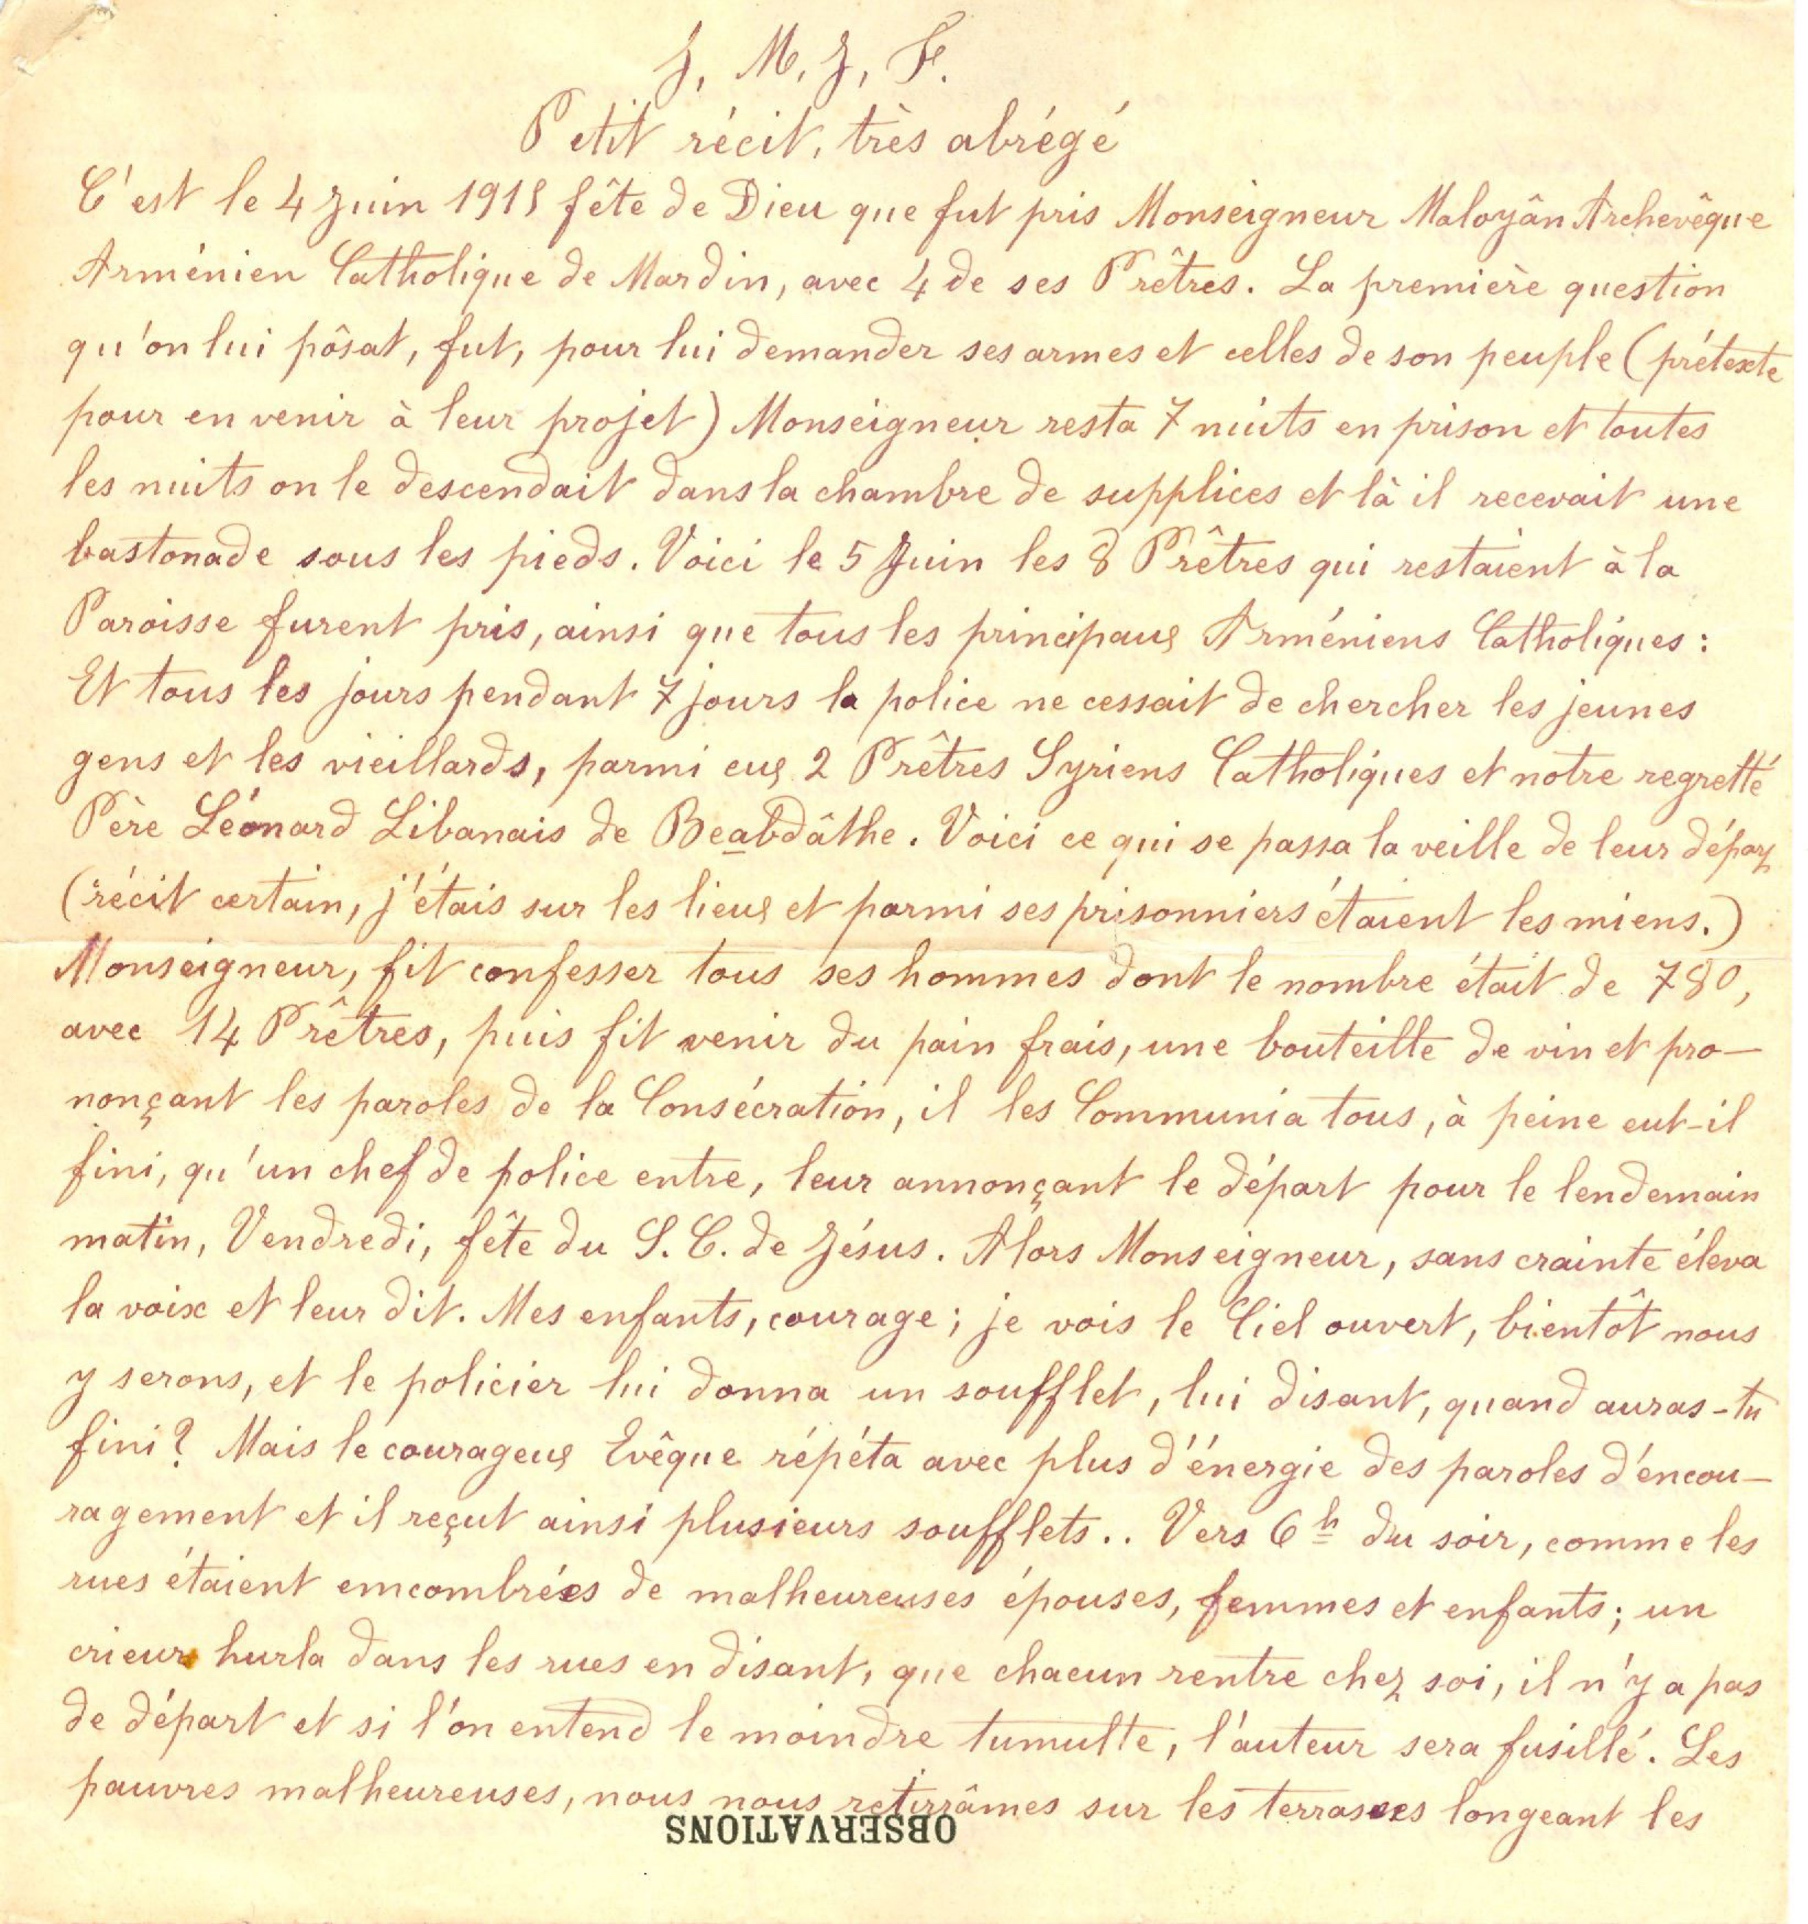 J. M. J. F.
Petit récit, très abrégé
C'est le 4 Juin 1915 fête de Dieu que fut pris Monseigneur Maloyân Archevêque
Arménien Catholique de Mardin, avec 4 de ses Prêtres. La première question
qu'on lui pôsat, fut, pour lui demander ses armes et celles de son peuple (prétexte
pour en venir à leur projet) Monseigneur resta 7 nuits en prison et toutes
les nuits on le descendait dans la chambre de supplices et là il recevait une
bastonade sous les pieds. Voici le 5 Juin les 8 Prêtres qui restaient à la
Paroisse furent pris, ainsi que tous les principaux Arméniens Catholiques :
Et tous les jours pendant 7 jours la police ne cessait de chercher les jeunes
gens et les vieillards, parmi eux 2 Prêtres Syriens Catholiques et notre regretté
Père Léonard Libanais de Beabdâthe. Voici ce qui se passa la veille de leur départ
(récit certain, j'étais sur les lieux et parmi ses prisonniers étaient les miens.)
Monseigneur, fit confesser tous ses hommes dont le nombre était de 780,
avec 14 Prêtres, puis fit venir du pain frais, une bouteille de vin et pro-
nonçant les paroles de la Consécration, il les Communia tous, à peine eut-il
fini, qu'un chef de police entre, leur annonçant le départ pour le lendemain
matin, Vendredi, fête du S. C. de Jésus. Alors Monseigneur, sans crainte éleva
la voix et leur dit. Mes enfants, courage ; je vois le Ciel ouvert, bientôt nous
y serons, et le policier lui donna un soufflet, lui disant, quand auras-tu
fini ? Mais le courageux Evêque répéta avec plus d'énergie des paroles d'encou-
ragement et il reçut ainsi plusieurs soufflets.. Vers 6h du soir, comme les
rues étaient emcombrées de malheureuses épouses, femmes et enfants ; un
crieur hurla dans les rues en disant, que chacun rentre chez soi, il n'y a pas
de départ et si l'on entend le moindre tumulte, l'auteur sera fusillé. Les
pauvres malheureuses, nous nous retirrâmes sur les terrasses longeant les
OBSERVATIONS